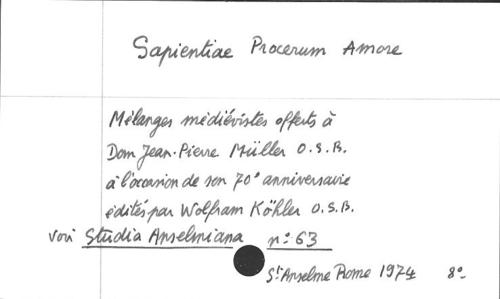 Sapientiae Procerum Amore
Mélanges médiévistes offerts à
Dom Jean-Pierre Müller O.S.B.
à l'occasion de son 70e anniversaire
édités par Wolfram Köhler O.S.B.
voir Studia Anselmiana n° 63
St Anselme Rome 1974 8°